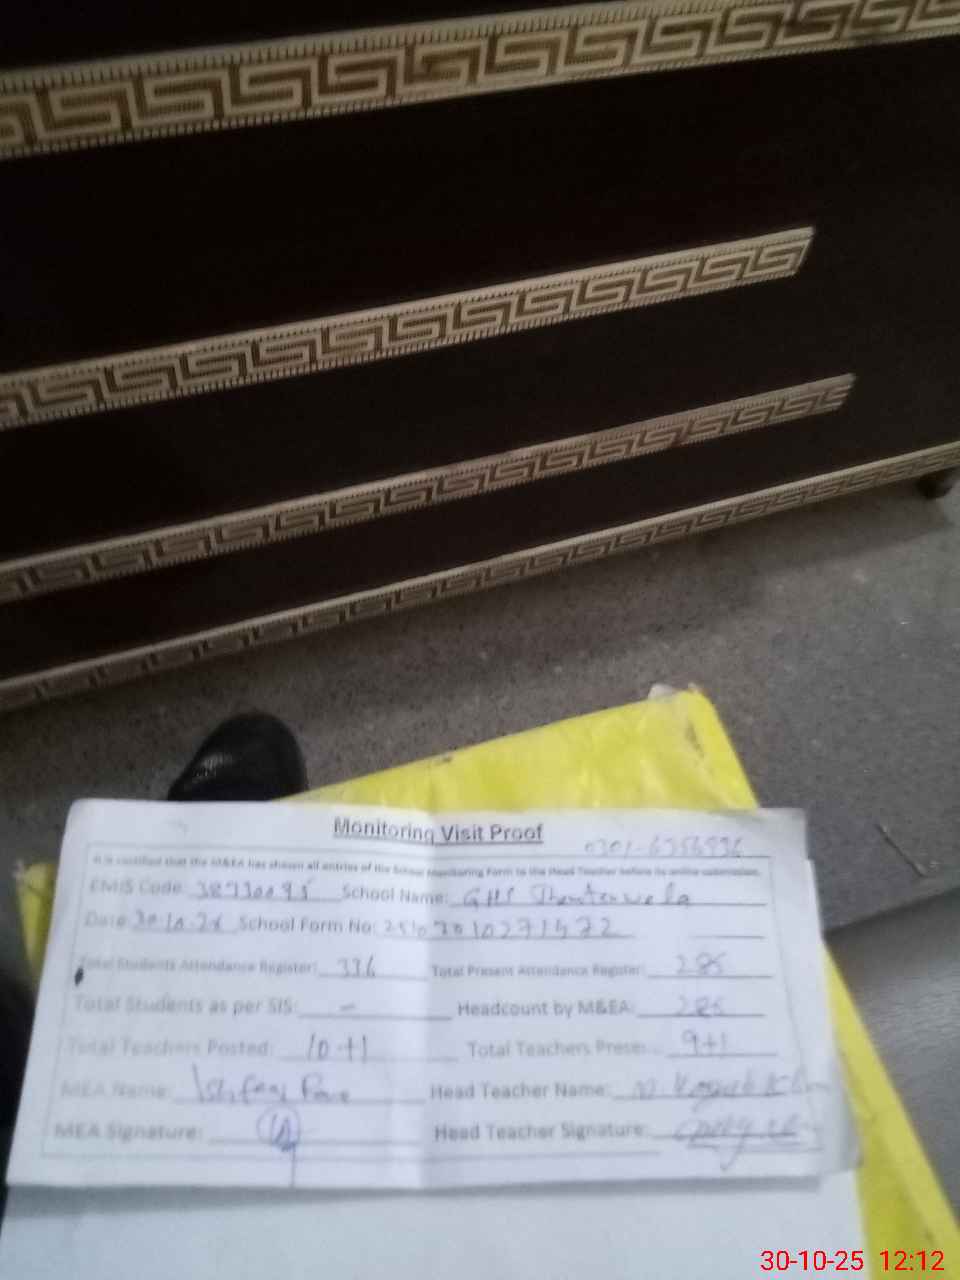 Monitoring Visit Proof
It is certified that the M&EA has shown all entries of the School Monitoring Form to the Head Teacher before its online submission.
EMIS Code: 38730095 School Name: GHS
Date: 30-10-25 School Form No:
Total Students Attendance Register: 336 Total Present Attendance Register: 285
Total Students as per SIS: - Headcount by M&EA: 285
Total Teachers Posted: 10+1 Total Teachers Prese 9+1
MEA Name: Head Teacher Name:
MEA Signature: Head Teacher Signature:
30-10-25 12:12